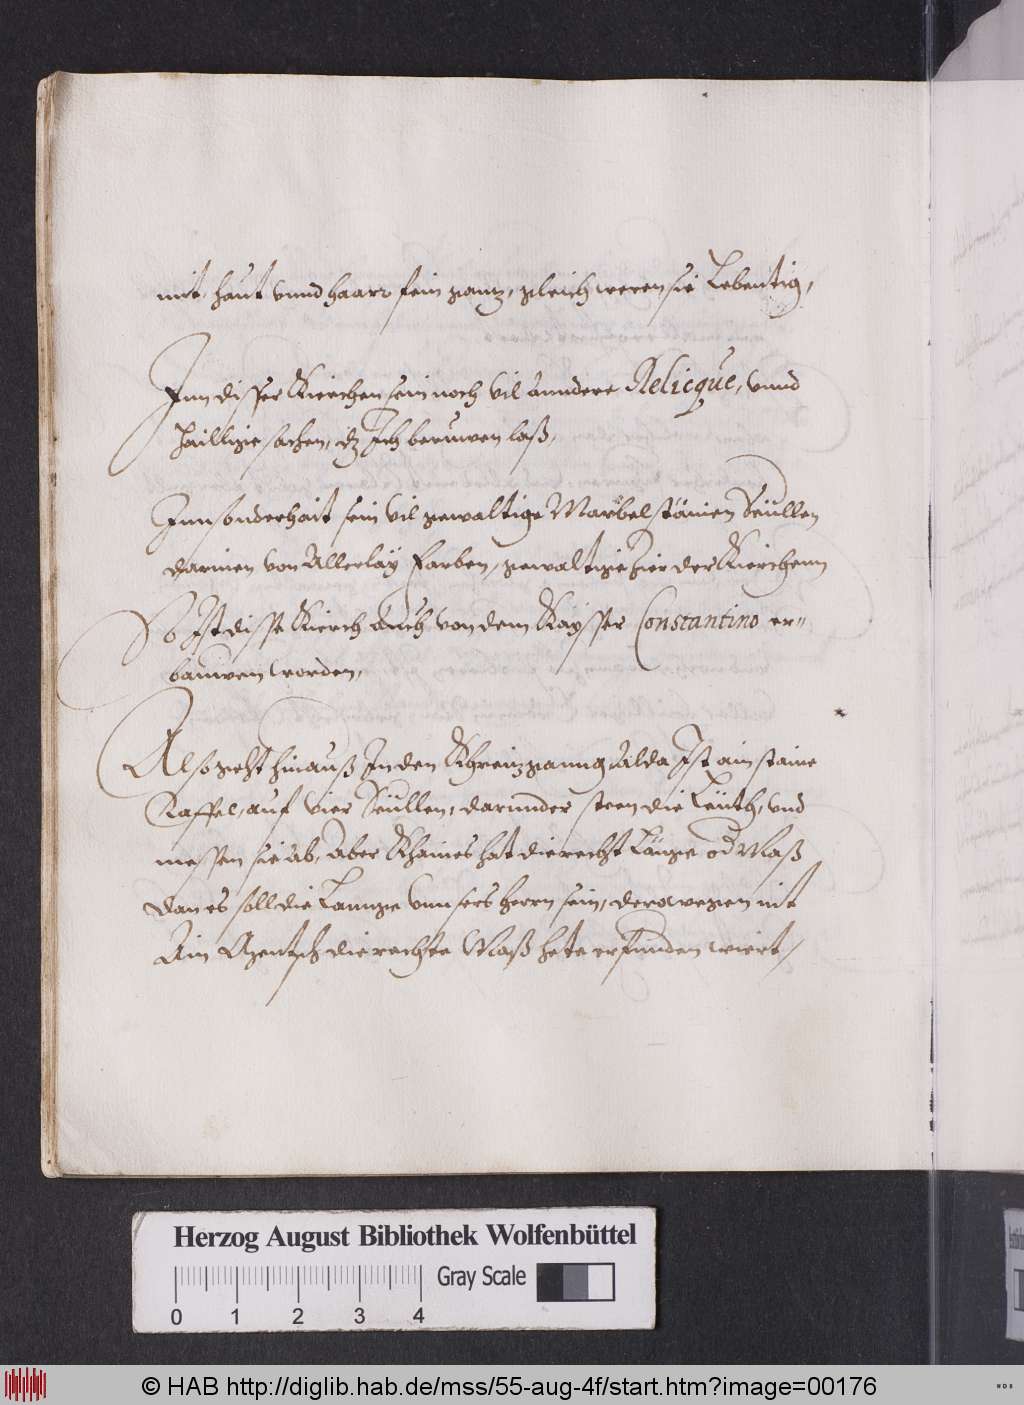 mit haut vnnd haar fein ganz, gleich weren sie Lebentig,
Inn disser Kierchen sein noch vil anndere Relicque, vnnd
haillige sachen, dz Ich beruwen laß,
Innsonderhait sein vil gewaltige Marbelstainen Seullen
darinen von Allerlay Farben, gewaltige Zier der Kierchenn
So Ist disse Kierch auch von dem Kaysser Constantino er=
bauwen worden,
Also geht hinauß In den Khreizganng Alda Ist ain staine
Taffel, auf vier Seullen, darunder steen die Leuth, vnd
messen sie ab, Aber Khaines hat die recht Lännge od Maß
dan es soll die Lannge vnnsers herrn sein, derowegen nit
Ain die rechte Maß hete erfunden wiert,
Herzog August Bibliothek Wolfenbüttel
Gray Scale
0 1 2 3 4
© HAB http://diglib.hab.de/mss/55-aug-4f/start.htm?image=00176